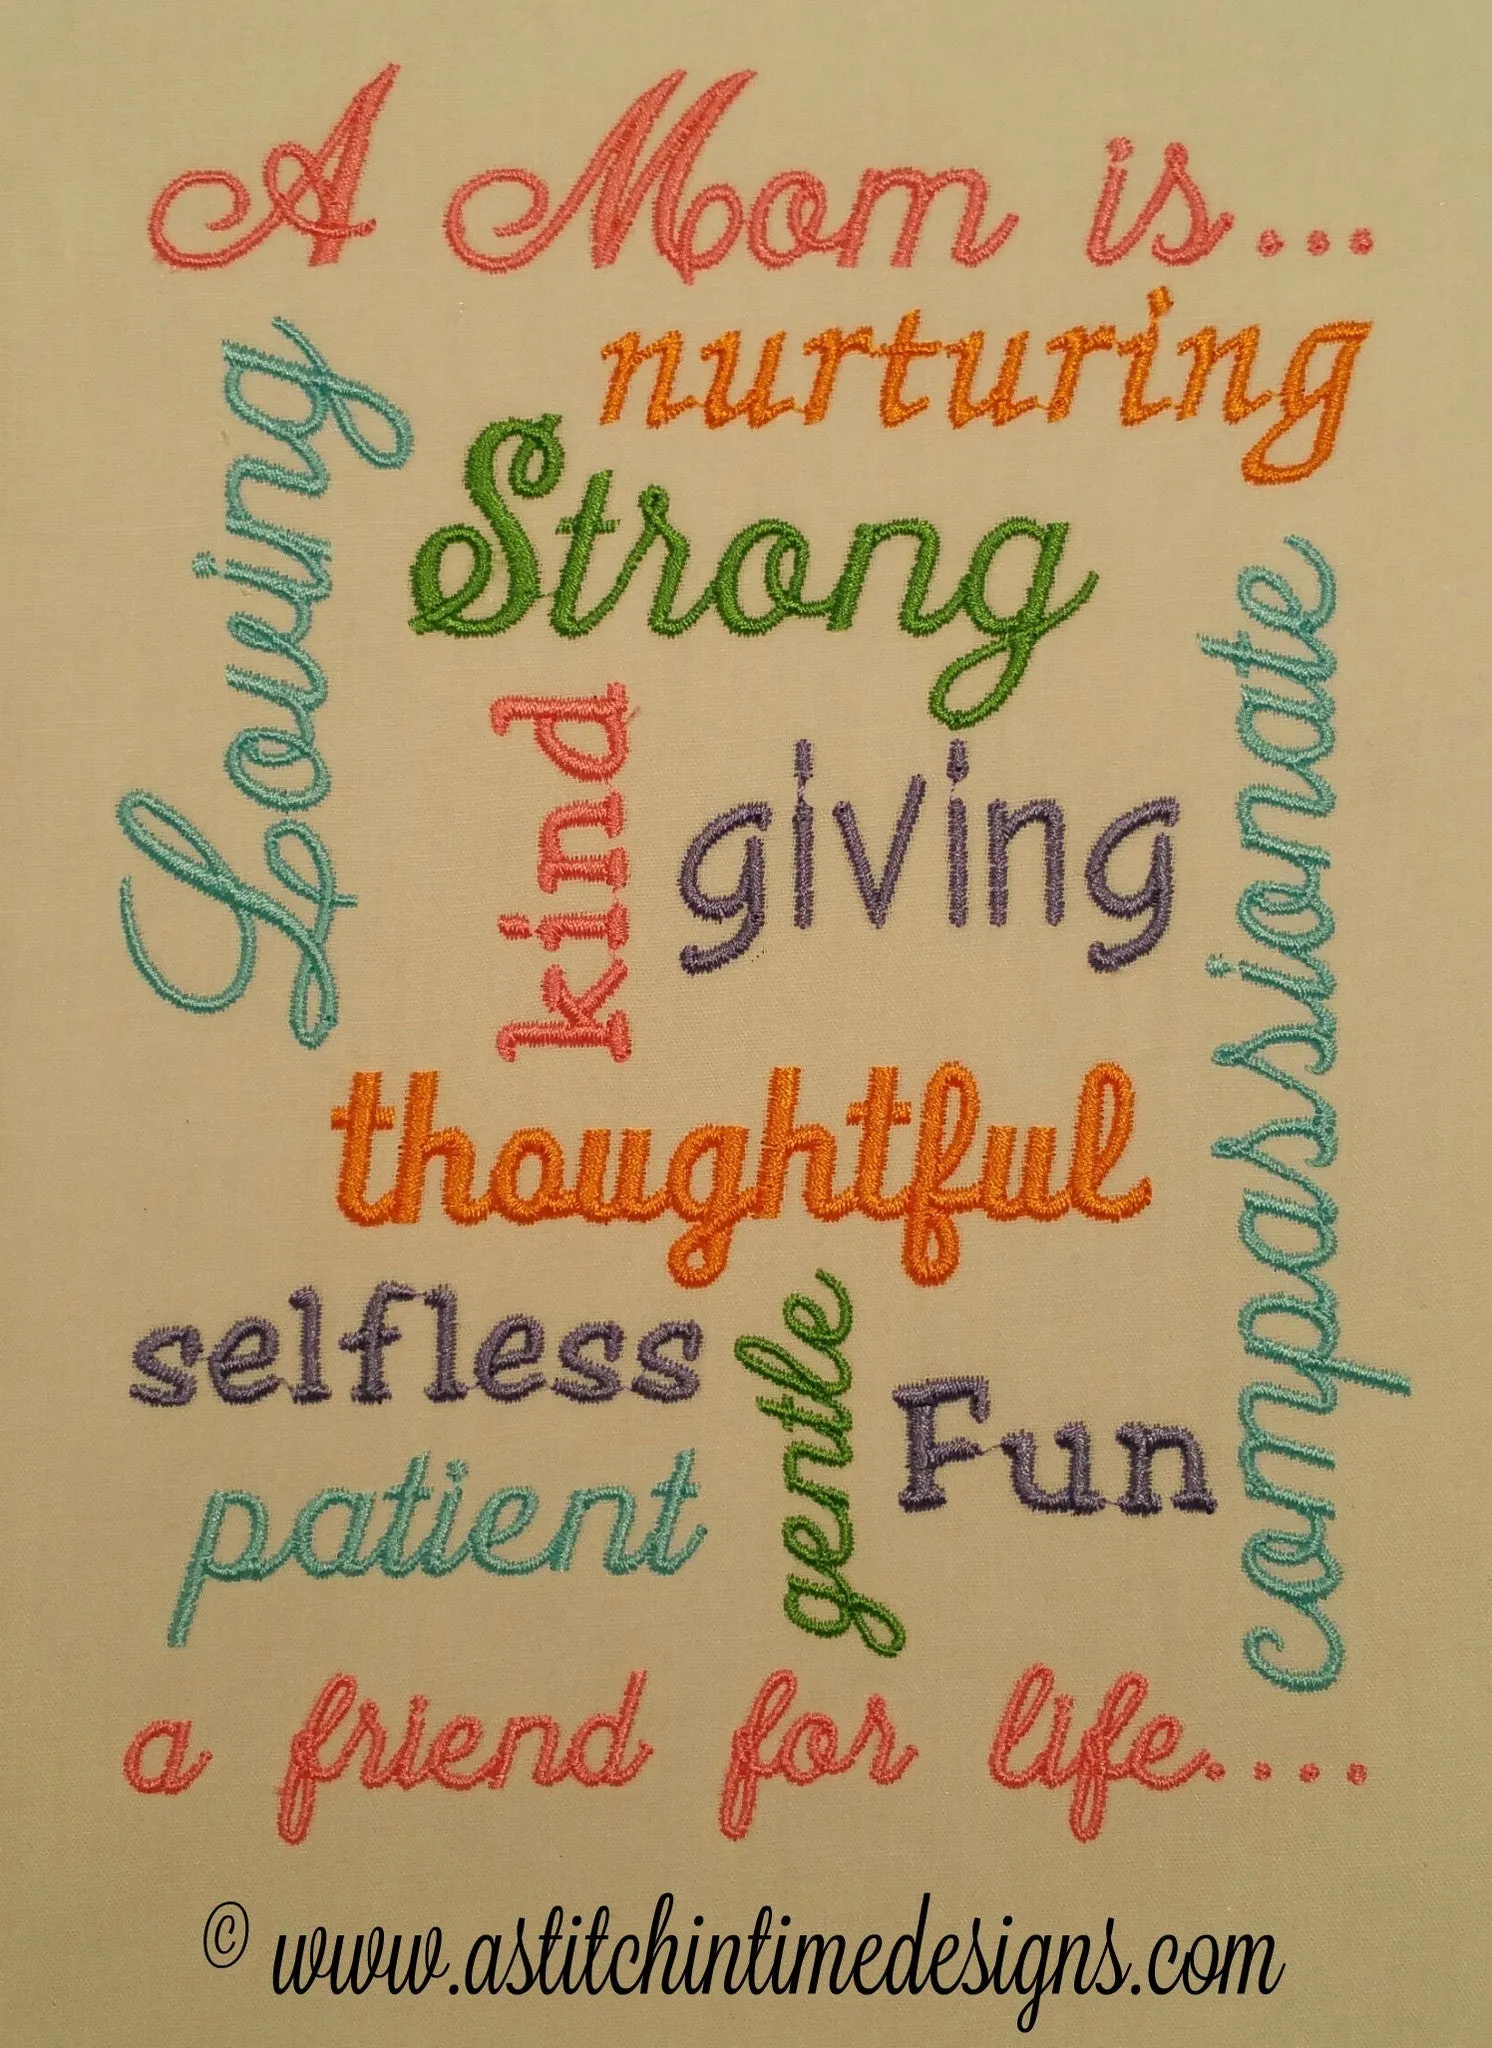 A Mom is...
nurturing
Loving
Strong
kind
giving
compassionate
thoughtful
selfless
gentle
Fun
patient
a friend for life....
© www.astitchintimedesigns.com